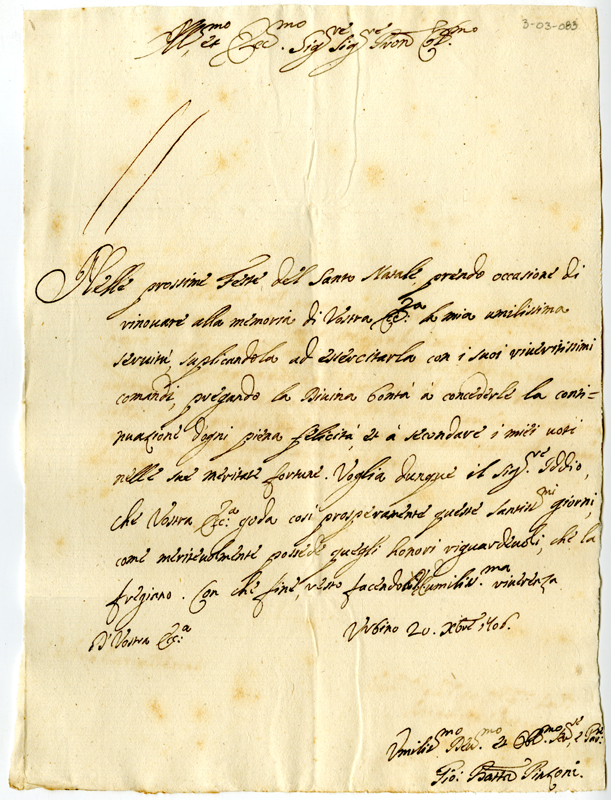 3-03-083
Ill.mo et Ecc.mo Sig.re Sig.re Pron Col.mo
Nelle prossime Feste del Santo Natale, prendo occasione di
rinovare alla memoria di Vostra Ecc.za la mia umilissima
servitù, suplicandola ad esercitarla con i suoi riveritissimi
comandi, pregando la Divina bontà à concederle la conti-
nuazione d'ogni piena felicità, et à secondare i miei voti
nelle sue meritate fortune. Voglia dunque il Sig.re Iddio,
che Vostra Ecc.za goda così prosperamente queste santiss.mi giorni,
come meritevolmente possede quegli honori riguardevoli, che la
fregiano. Con che fine, resto facendole umiliss.ma riverenza
D'Vostra Ecc.za
Urbino 20. Xbre 1706.
Umiliss.mo Dev.mo et Obb.mo Ser.re
Gio: Batta